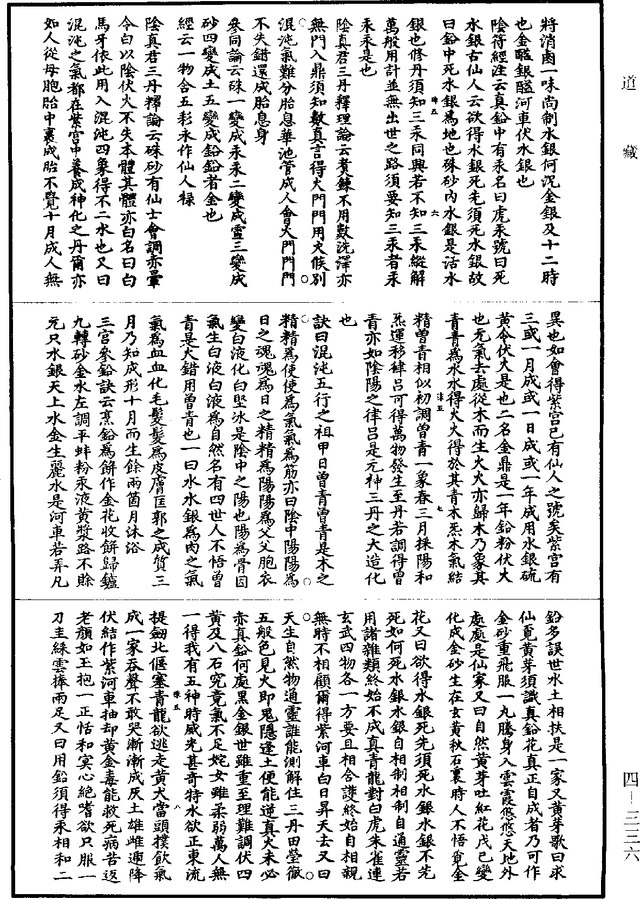 道藏
將消鹵一味尚制水銀何況金銀及十二時
也金醯銀醯河車伏水銀也
陰符經注云真鉛中有汞名曰虎汞號曰死
水銀古仙人云欲得水銀死先須死水銀故
曰鉛中死水銀為地也硃砂內水銀是活水
銀也修丹須知三汞同興若不知三汞縱解
萬般用計並無出世之路須要知三汞者汞
汞汞是也
陰真君三丹釋理論云煑鍊不用數洗澤亦
無門入鼎須知數真言得火門門用火候別
混沌氣難分胎息華池管成人會火門門門
不失錯還成胎息身
參同論云硃一變成汞汞二變成靈三變成
砂四變成土五變成鉛鉛者金也
經云一物含五彩永作仙人祿
陰真君三丹釋論云硃砂有仙士會調亦暈
令白以陰伏火不失本體其體亦白名曰白
馬牙依此用入混沌四象得不二水也又曰
混沌之氣都在紫宮中養成神化之丹爾亦
如人從母胞胎中裹成胎不覺十月成人無
異也如會得紫宮已有仙人之號矣紫宮有
三或一月成或一日成或一年成用水銀硫
黃令伏火是也二名金鼎是一年鉛粉伏火
也尤氣去處從木而生火火亦歸木乃象其
青青為水水得火火得於其青木炁木氣結
精曾青相似初調曾青一象春三月採陽和
炁運移律呂可得萬物發生至丹若調得曾
青亦如陰陽之律呂是元神三丹之大造化
也
訣曰混沌五行之祖甲日曾青曾青是木之
精精為使使為氣氣為筋亦曰陰中陽陽為
日之魂魂為日之精精為陽陽為父父胞衣
變白液化白堅冰是陰中之陽也陽為骨因
氣生白液白液為自然名有四世人不悟曾
青是大錯用曾青也一曰水水銀為肉之氣
氣為血血化毛髮髮為皮膚匡郭之成質三
月乃知成形十月而生餘兩箇月沐浴
三宮參鉛訣云烹鉛為餅作金花收餅歸鑪
九轉砂金水左調平蚌粉汞液黃漿路不賖
元只水銀天上水金生麗水是河車若弄凡
鉛多誤世水土相扶是一家又黃芽歌曰求
仙覓黃芽須識真鉛花真正自成者乃可作
金砂重飛服一丸騰身入雲霞悠悠天地外
處處是仙家又曰自然黃芽吐紅花戊已變
化成金砂生在玄黃秋石裏時人不悟覓金
花又曰欲得水銀死先須死水銀水銀不先
死如何死水銀水銀自相制相制自通靈若
用諸雜類終始不成真青龍對白虎朱雀連
玄武四物各一方要且相合護終始自相親
無時不相顧爾得紫河車白日昇天去又曰
天生自然物通靈誰能測解住三丹田瑩徹
五般色見火即鬼隱逢土便能逆真火未必
亦真鉛何處黑金銀世雖重至理難調伏四
黃及八石究竟氣不足姹女雖柔弱萬人無
一得我有五神時威光甚奇特水欲正東流
提劔北偃塞青龍欲逃走黃犬當頭撲飲氣
成一家吞聲不敢哭漸漸成灰土雄雌運降
伏結作紫河車抽却黃金毒能救死病苦返
老顏如玉抱一正恬和寞心絕嗜欲只服一
刀圭綵雲捧兩足又曰用鉛須得汞相和二
四─三三六